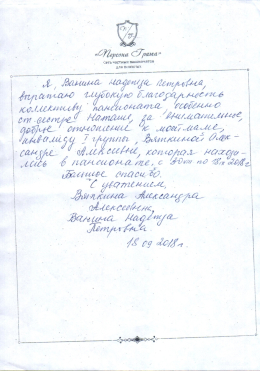 Сеть частных пансионатов
для пожилых
Я, Ванина Надежда Петровна,
выражаю глубокую благодарность
коллективу пансионата, особенно
Наташе, за внимательное,
доброе отношение к моей маме,
инвалиду I группы, Вяткиной Алек-
сандре Алексеевне, которая находи-
лась в пансионате, с по
Большое спасибо.
С уважением,
Вяткина Александра
Алексеевна,
Ванина Надежда
Петровна
18.09.2018г.